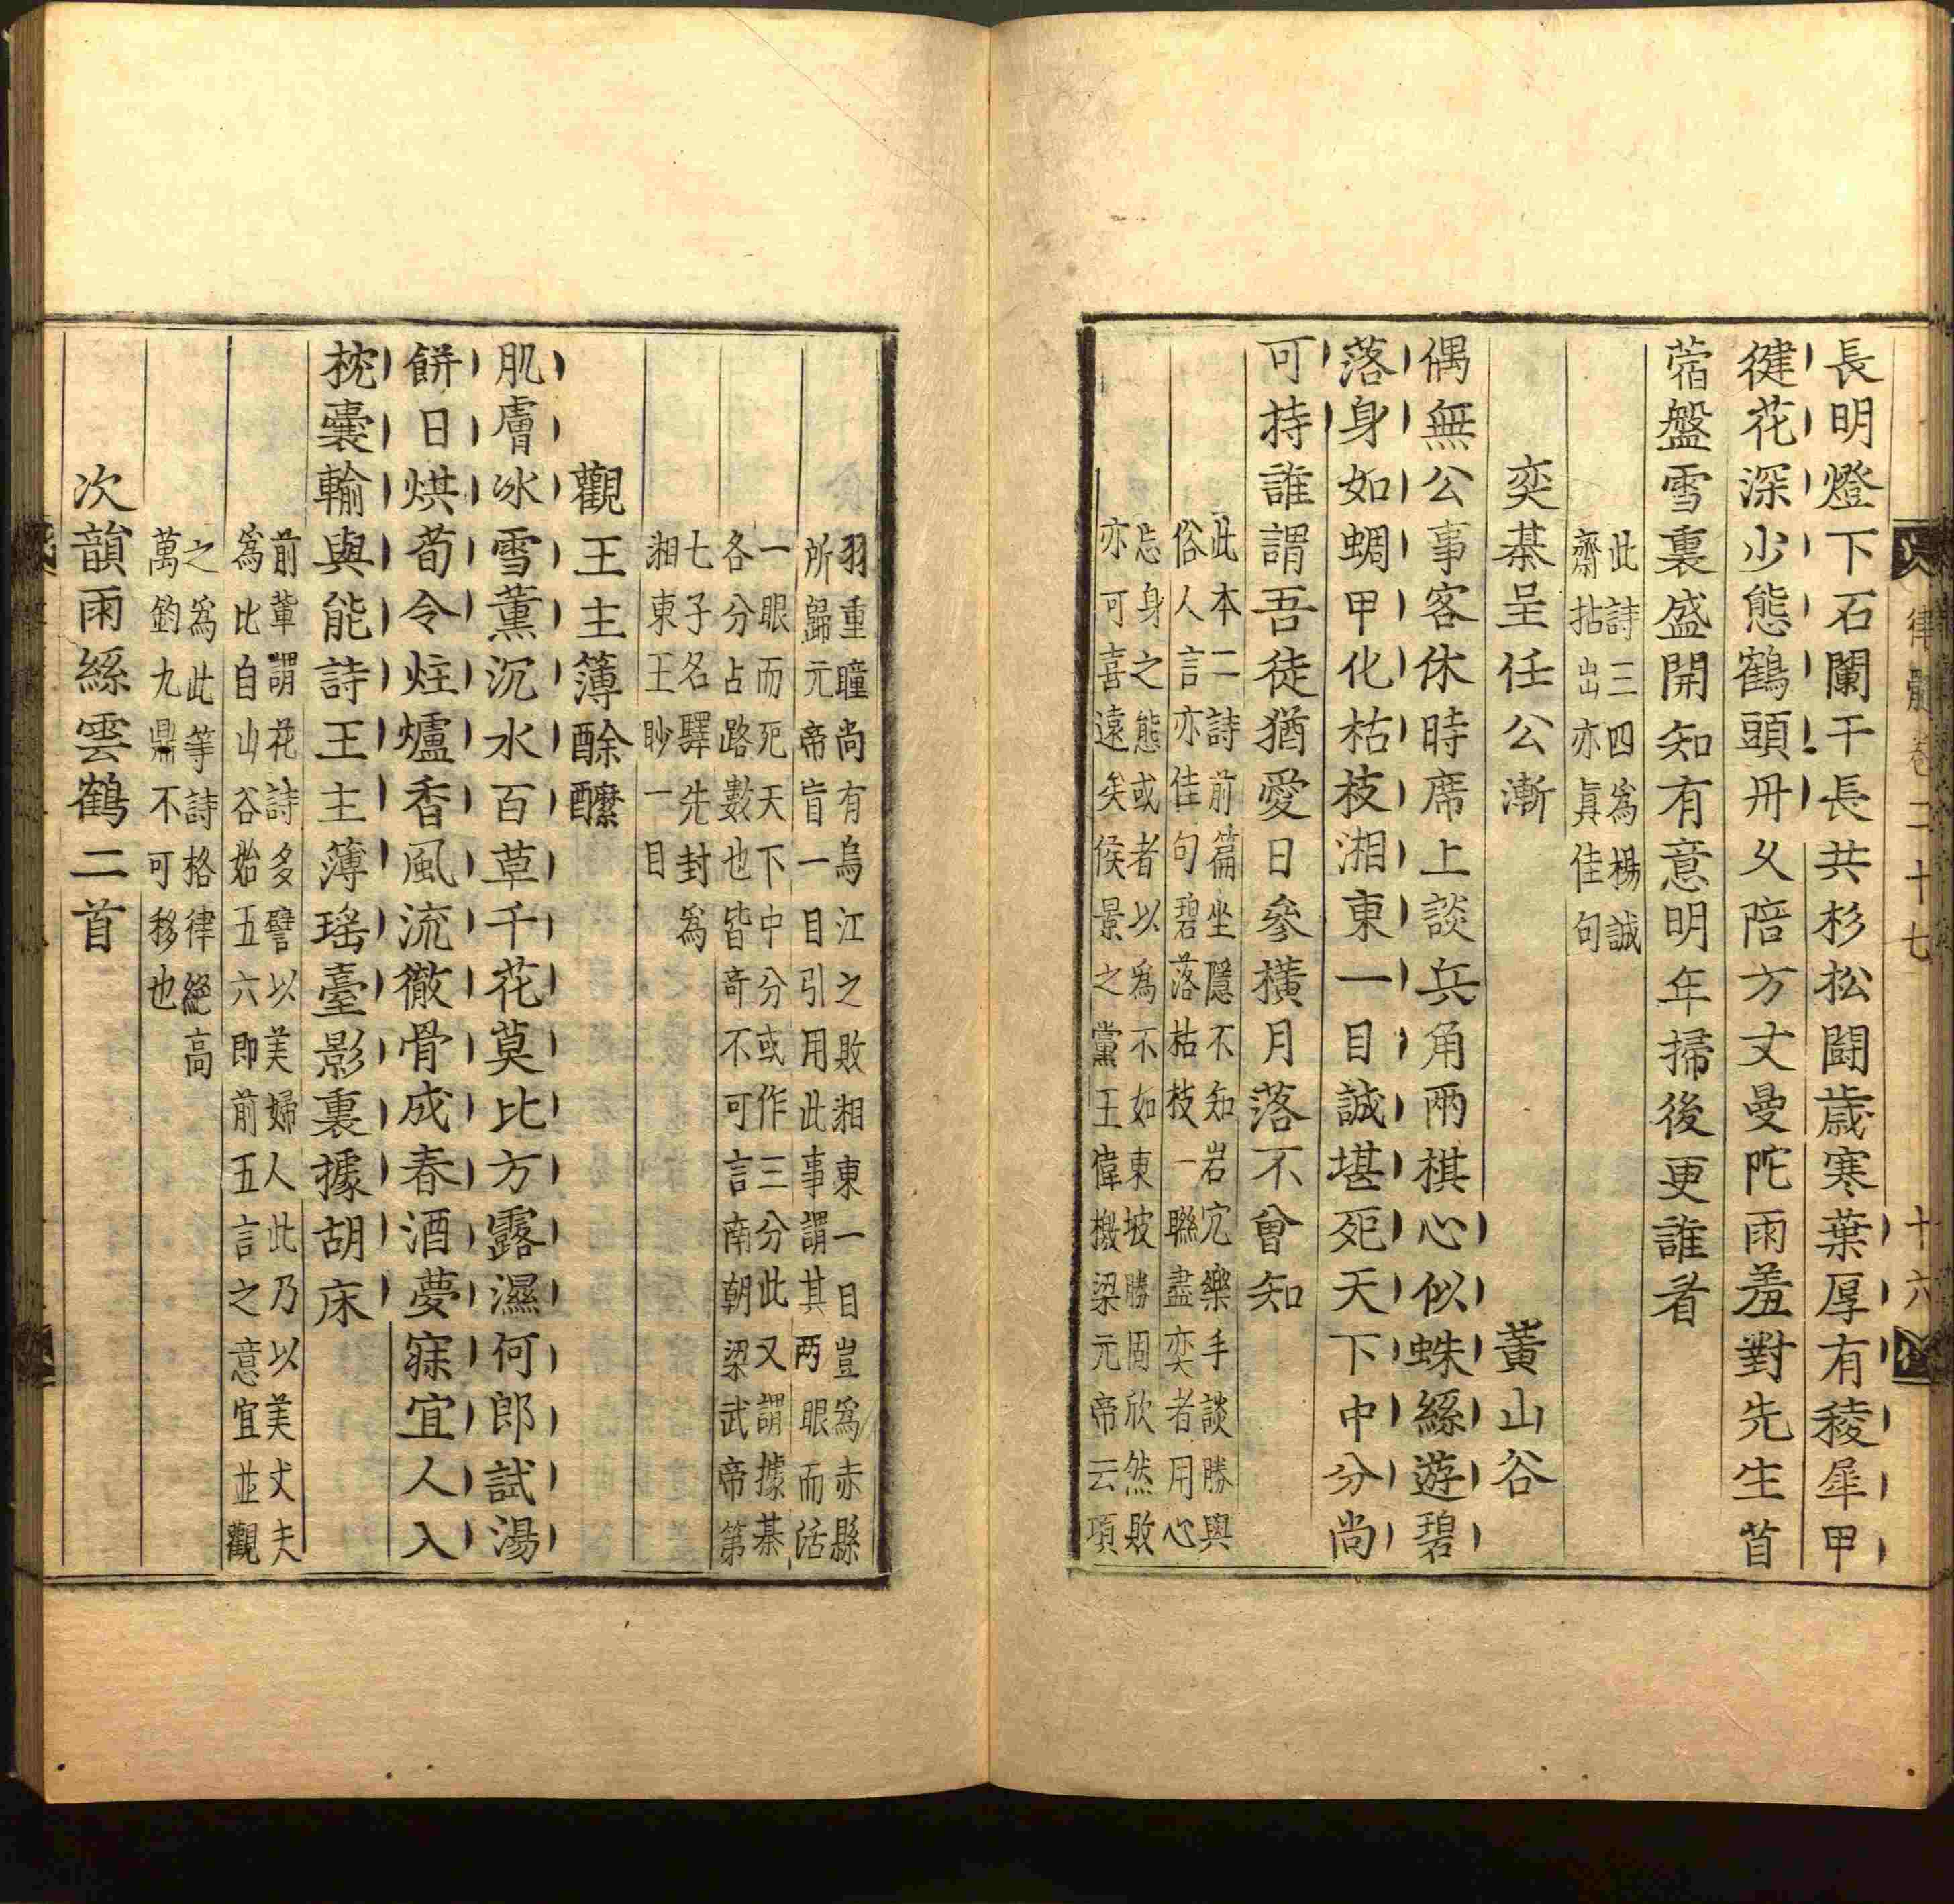 律髓卷二十七
十六
長明燈下石闌干長共杉松鬪歳寒葉厚有稜犀甲
健花深少態鶴頭丹久陪方丈曼陀雨羞對先生苜
蓿盤雪裏盛開知有意明年掃後更誰看
此詩三四爲楊誠
齋拈出亦眞佳句
奕棊呈任公漸　黃山谷
偶無公事客休時席上談兵角兩棋心似蛛絲遊碧
落身如蜩甲化枯枝湘東一目誠堪死天下中分尚
可持誰謂吾徒猶愛日參橫月落不曾知
此本二詩前篇坐隱不知岩穴樂手談勝與
俗人言亦佳句碧落枯枝一聯盡奕者用心
忘身之態或者以爲不如東坡勝固欣然敗
亦可喜遠矣侯景之黨王偉檄梁元帝云項
羽重瞳尚有烏江之敗湘東一目豈爲赤縣
所歸元帝盲一目引用此事謂其兩眼而活
一眼而死天下中分或作三分此又謂據棊
各分占路數也皆奇不可言南朝梁武帝第
七子名驛先封爲
湘東王眇一目
觀王主簿酴醾
肌膚冰雪薰沉水百草千花莫比方露濕何郎試湯
餅日烘荀令炷爐香風流徹骨成春酒夢寐宜人入
枕囊輸與能詩王主薄瑤臺影裏據胡床
前輩謂花詩多譬以美婦人此乃以美丈夫
爲比自山谷始五六即前五言之意宜並觀
之爲此等詩格律絕高
萬鈞九鼎不可移也
次韻雨絲雲鶴二首